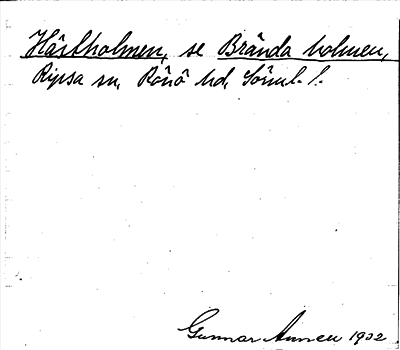 Hârkholmen, se Brända holmen,
Ripsa sn, Rönö hd, Söml. l.
Gunnar Annell 1932